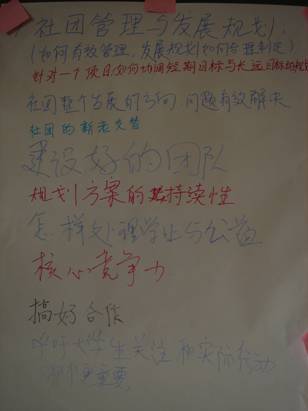 社团管理与发展规划.
(如何有效管理,发展规划如何合理制定)
针对一个项目如何协调短期目标与长远目标的规划
社团整个发展的方向 问题有效解决
社团的新老交替
建设好的团队
规划方案的持续性
怎样处理学业与公益
核心竞争力
搞好合作
呼吁大学生关注和实际行动
哪个更重要